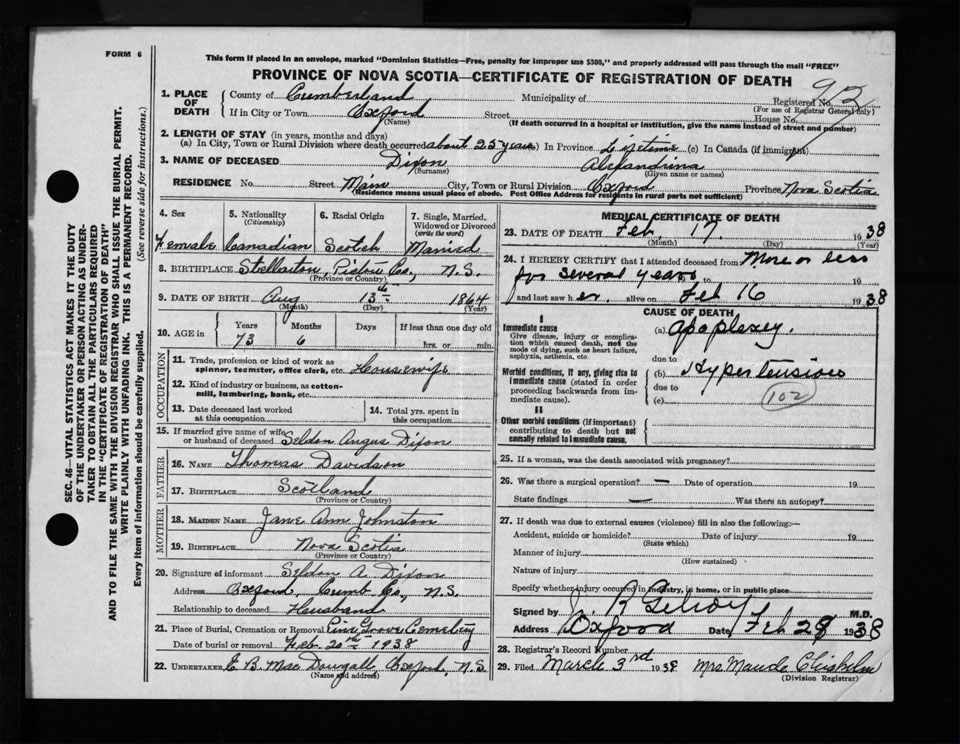 FORM 6
This form if placed in an envelope, marked "Dominion Statistics—Free, penalty for improper use $300," and properly addressed will pass through the mail "FREE"
PROVINCE OF NOVA SCOTIA—CERTIFICATE OF REGISTRATION OF DEATH
SEC. 46—VITAL STATISTICS ACT MAKES IT THE DUTY
OF THE UNDERTAKER OR PERSON ACTING AS UNDER-
TAKER TO OBTAIN ALL THE PARTICULARS REQUIRED
IN THE "CERTIFICATE OF REGISTRATION OF DEATH"
AND TO FILE THE SAME WITH THE DIVISION REGISTRAR WHO SHALL ISSUE THE BURIAL PERMIT.
WRITE PLAINLY WITH UNFADING INK. THIS IS A PERMANENT RECORD.
Every item of information should be carefully supplied. (See reverse side for instructions.)
1. PLACE OF DEATH County of Cumberland Municipality of Registered No. 912
(For use of Registrar General only)
If in City or Town Oxford Street House No.
(Name) (If death occurred in a hospital or institution, give the name instead of street and number)
2. LENGTH OF STAY (in years, months and days)
(a) In City, Town or Rural Division where death occurred about 25 years (b) In Province Lifetime (c) In Canada (if immigrant)
3. NAME OF DECEASED Dixon Alexandrina
(Surname) (Given name or names)
RESIDENCE No. Street Main City, Town or Rural Division Oxford Province Nova Scotia
(Residence means usual place of abode. Post Office Address for residents in rural parts not sufficient)
4. Sex 5. Nationality 6. Racial Origin 7. Single, Married,
(Citizenship) Widowed or Divorced
(write the word)
Female Canadian Scotch Married
8. BIRTHPLACE Stellarton, Pictou Co., N.S.
(Province or Country)
9. DATE OF BIRTH Aug 13th 1864
(Month) (Day) (Year)
10. AGE in Years Months Days If less than one day old
73 6 hrs. or min.
OCCUPATION
11. Trade, profession or kind of work as
spinner, teamster, office clerk, etc. Housewife
12. Kind of industry or business, as cotton-
mill, lumbering, bank, etc.
13. Date deceased last worked 14. Total yrs. spent in
at this occupation this occupation
15. If married give name of wife
or husband of deceased Seldon Angus Dixon
FATHER
16. NAME Thomas Davidson
17. BIRTHPLACE Scotland
(Province or Country)
MOTHER
18. MAIDEN NAME Jane Ann Johnston
19. BIRTHPLACE Nova Scotia
(Province or Country)
20. Signature of informant Seldon A. Dixon
Address Oxford, Cumb Co., N.S.
Relationship to deceased Husband
21. Place of Burial, Cremation or Removal Pine Grove Cemetery
Date of burial or removal Feb. 20th 1938
22. UNDERTAKER E B. Mac Dougall Oxford, N.S.
(Name and address)
MEDICAL CERTIFICATE OF DEATH
23. DATE OF DEATH Feb. 17. 1938
(Month) (Day) (Year)
24. I HEREBY CERTIFY that I attended deceased from More or less
for several years 19
and last saw her alive on Feb 16 1938
CAUSE OF DEATH
I
Immediate cause
Give disease, injury or complica-
tion which caused death, not the
mode of dying, such as heart failure,
asphyxia, asthenia, etc.
(a) apoplexy.
due to
Morbid conditions, if any, giving rise to
immediate cause (stated in order
proceeding backwards from im-
mediate cause).
(b) Hypertension
due to
(c) 102
II
Other morbid conditions (if important)
contributing to death but not
causally related to immediate cause.
25. If a woman, was the death associated with pregnancy?
26. Was there a surgical operation? — Date of operation 19
State findings — Was there an autopsy?
27. If death was due to external causes (violence) fill in also the following:—
Accident, suicide or homicide? Date of injury 19
(State which)
Manner of injury
(How sustained)
Nature of injury
Specify whether injury occurred in industry, in home, or in public place
Signed by J. R Gilroy M.D.
Address Oxford Date Feb 28 1938
28. Registrar's Record Number
29. Filed March 3rd 1938 Mrs Maude Chisholm
(Division Registrar)